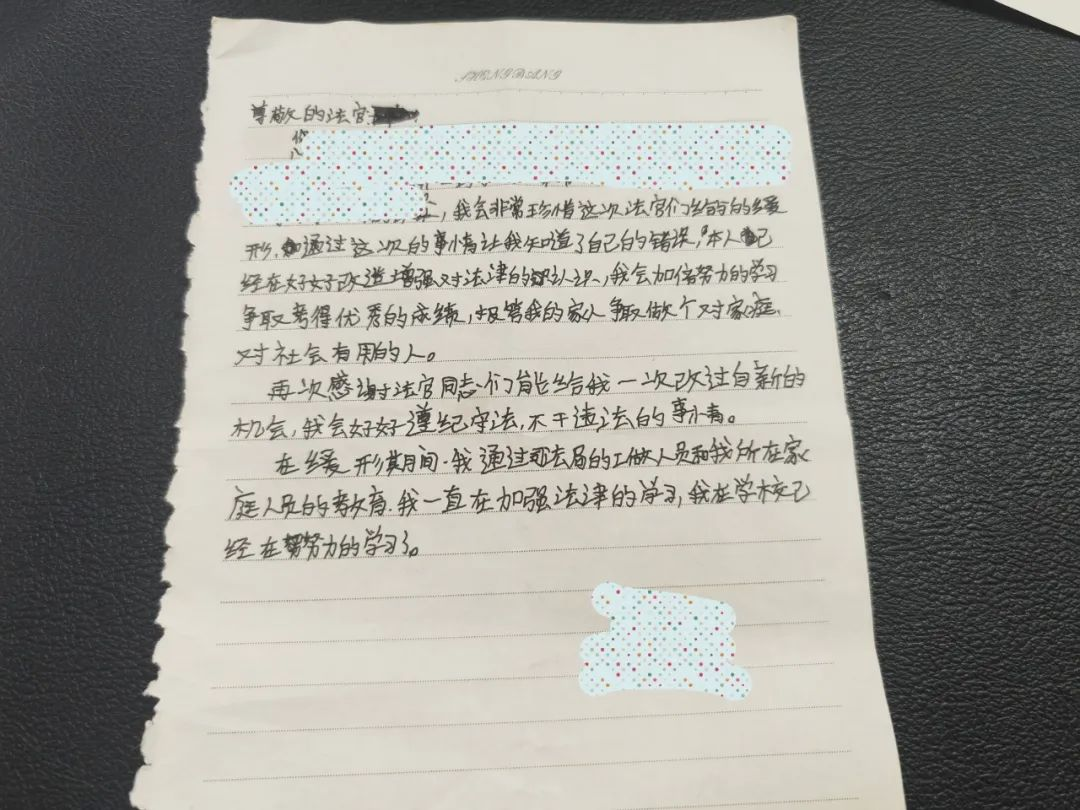 SHENGBANG
尊敬的法官
你
，我会非常珍惜这次法官们给的的缓
形，通过这次的事情让我知道了自己的错误，本人已
经在好好改造增强对法津的认识，我会加倍努力的学习
争取考得优秀的成绩，报答我的家人争取做个对家庭、
对社会有用的人。
再次感谢法官同志们能给我一次改过自新的
机会，我会好好遵纪守法，不干违法的事情。
在缓形期间.我通过司法局的工做人员和我所在家
庭人员的教育.我一直在加强法津的学习，我在学校已
经在努力的学习了。